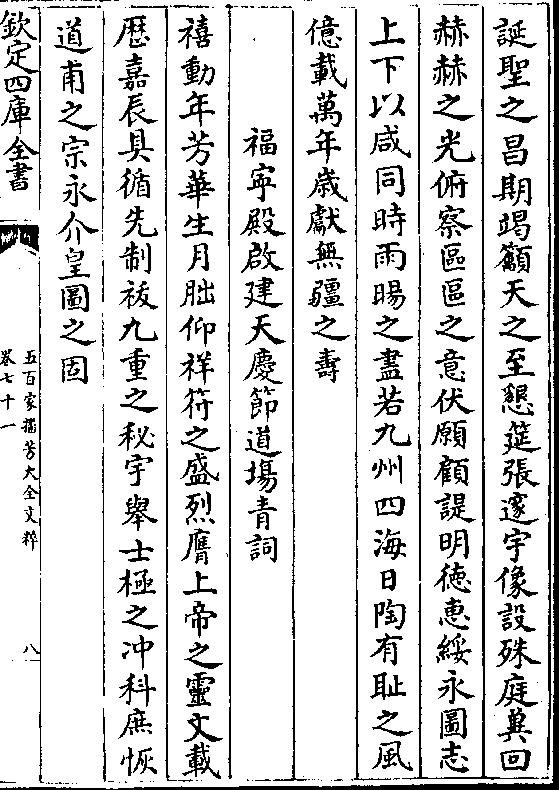 誕聖之昌期竭籲天之至懇筵張邃宇像設殊庭冀回
赫赫之光俯察區區之意伏願顧諟明徳惠綏永圖志
上下以咸同時雨暘之盡若九州四海日陶有耻之風
億載萬年歲獻無疆之壽
福寜殿啟建天慶節道場青詞
禧動年芳華生月朏仰祥符之盛烈膺上帝之靈文載
歴嘉辰具循先制袚九重之秘宇舉士極之冲科庶恢
道甫之宗永介皇圖之固
欽定四庫全書
五百家播芳大全文粹
卷七十一
八